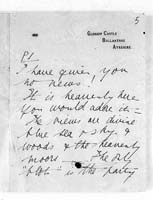 5
GLENAPP CASTLE
BALLANTRAE
AYRSHIRE.
P.S.
I have given you
no news!
It is heavenly here
You would adore it –
The views are divine
blue sea & sky. &
woods & the heavenly
moors. The only
"blot" is the party